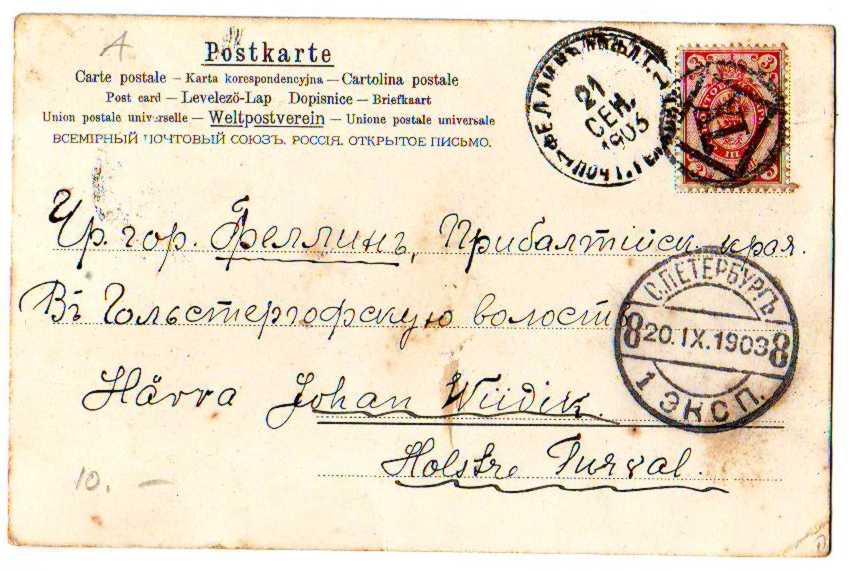 A
Postkarte
Carte postale – Karta korespondencyjna – Cartolina postale
Post card – Levelező-Lap Dopisnice – Briefkaart
Union postale universelle – Weltpostverein – Unione postale universale
ВСЕМІРНЫЙ ПОЧТОВЫЙ СОЮЗЪ. РОССІЯ. ОТКРЫТОЕ ПИСЬМО.
ФЕЛЛИНЪ
21 СЕН. 1903
3 3
Чр. гор. Феллинъ, Прибалтійск. края.
Въ Гольстергофскую волость
С.ПЕТЕРБУРГЪ
8 20.IX.1903 8
1 ЭКСП.
Härra Johan Wiidik.
Holstre Turval.
10. —